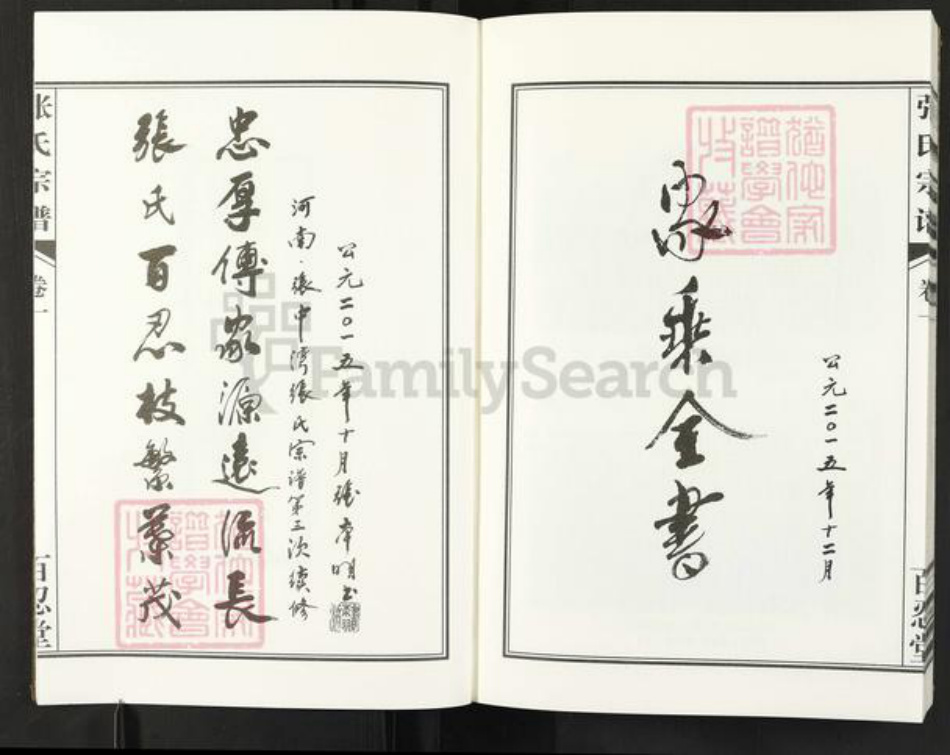 张氏宗谱
卷一
百忍堂
家乘全書
公元二〇一五年十二月
公元二〇一五年十月張本明书
河南·張中湾張氏宗谱第三次续修
忠厚傳家源遠流長
張氏百忍枝繁葉茂
张氏宗谱
卷一
百忍堂
譜學會
收藏
譜學會
收藏
FamilySearch